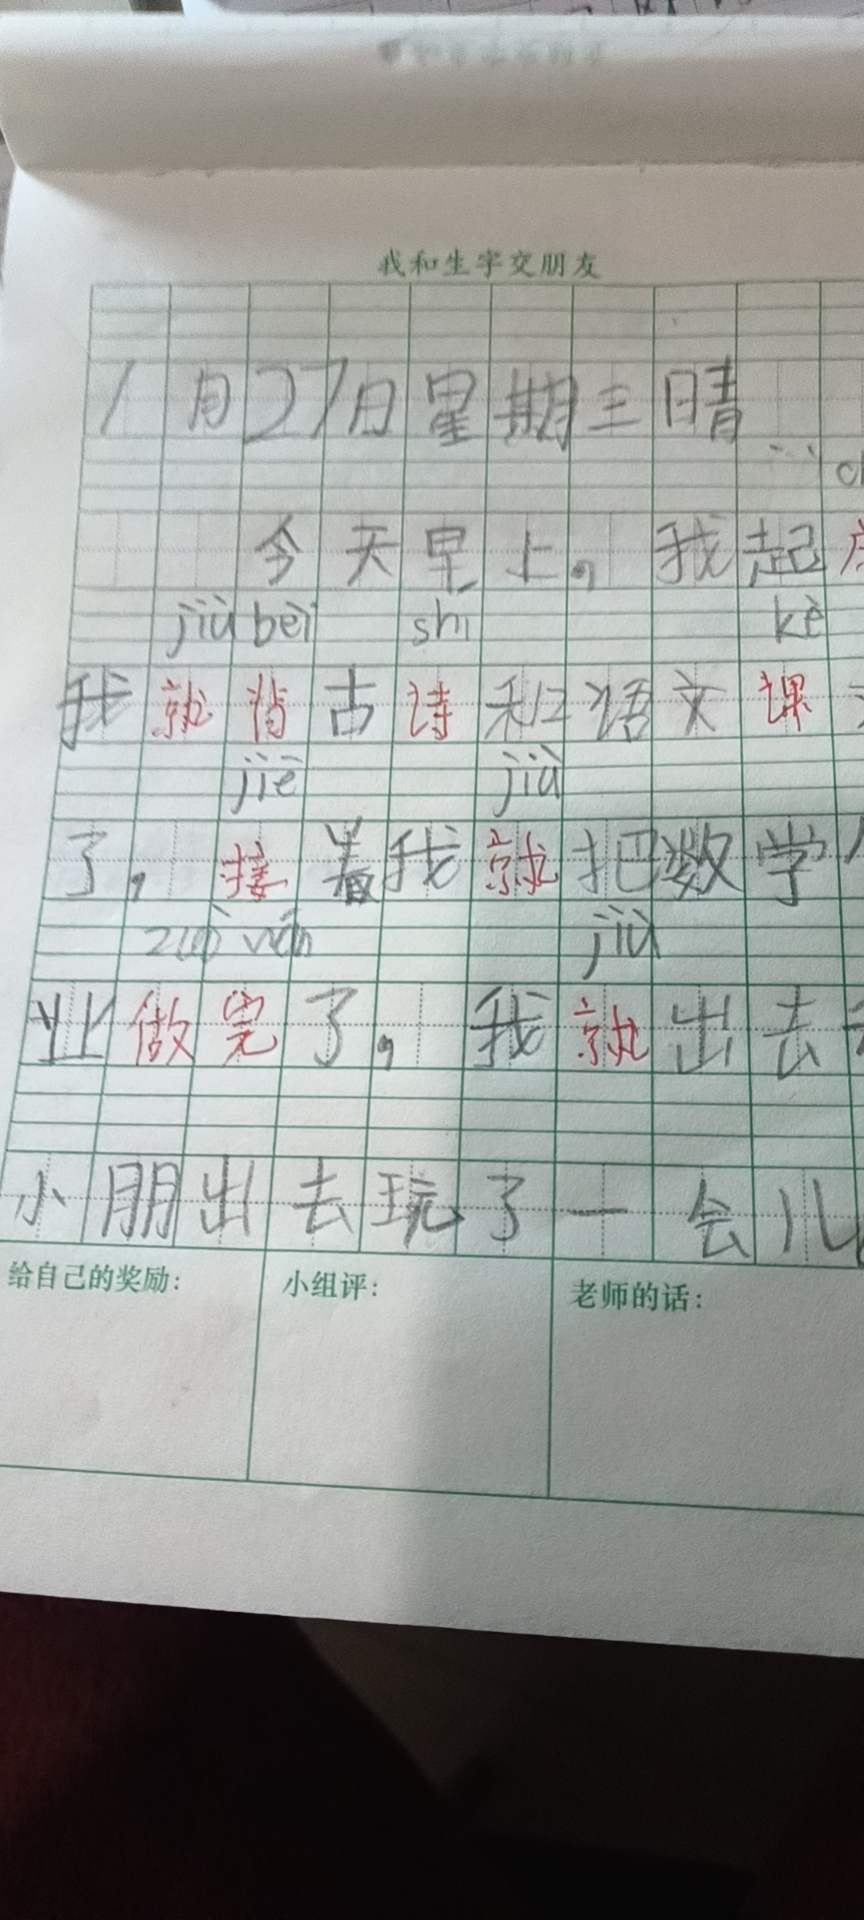 我和生字交朋友
1月27日星期三晴
今天早上，我起
jiù bèi shī kè
我就背古诗和语文课
jiē jiù
了，接着我就把数学
zuò wán jiù
业做完了，我就出去
小朋出去玩了一会儿
给自己的奖励： 小组评： 老师的话：